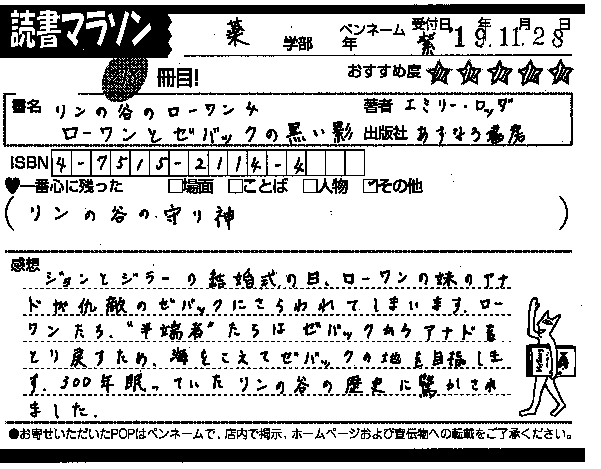 読書マラソン
薬 学部 年
ペンネーム 紫
受付日 年 月 日
19.11.28
冊目!
おすすめ度 ☆☆☆☆☆
書名 リンの谷のローワン4
ローワンとゼバックの黒い影
著者 エミリー・ロッダ
出版社 あすなろ書房
ISBN 4-7515-2114-4
♥一番心に残った □場面 □ことば □人物 ☑その他
(リンの谷の守り神)
感想
ジョンとジラーの結婚式の日、ローワンの妹のアナ
ドが仇敵のゼバックにさらわれてしまいます。ロー
ワンたち、“半端者”たちはゼバックからアナドを
とり戻すため、海をこえてゼバックの地を目指しま
す。300年眠っていたリンの谷の歴史に驚かされ
ました。
●お寄せいただいたPOPはペンネームで、店内で掲示、ホームページおよび宣伝物への転載をご了承ください。